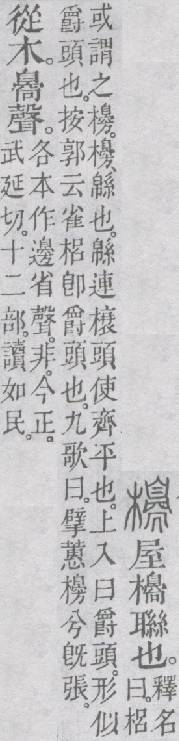 櫋屋櫋聯也。釋名
曰。梠
或謂之櫋。櫋緜也。緜連榱頭使齊平也。上入曰爵頭。形似
爵頭也。按郭云雀梠卽爵頭也。九歌曰。擘蕙櫋兮旣張。
從木。臱聲。各本作邊省聲。非。今正。
武延切。十二部。讀如民。